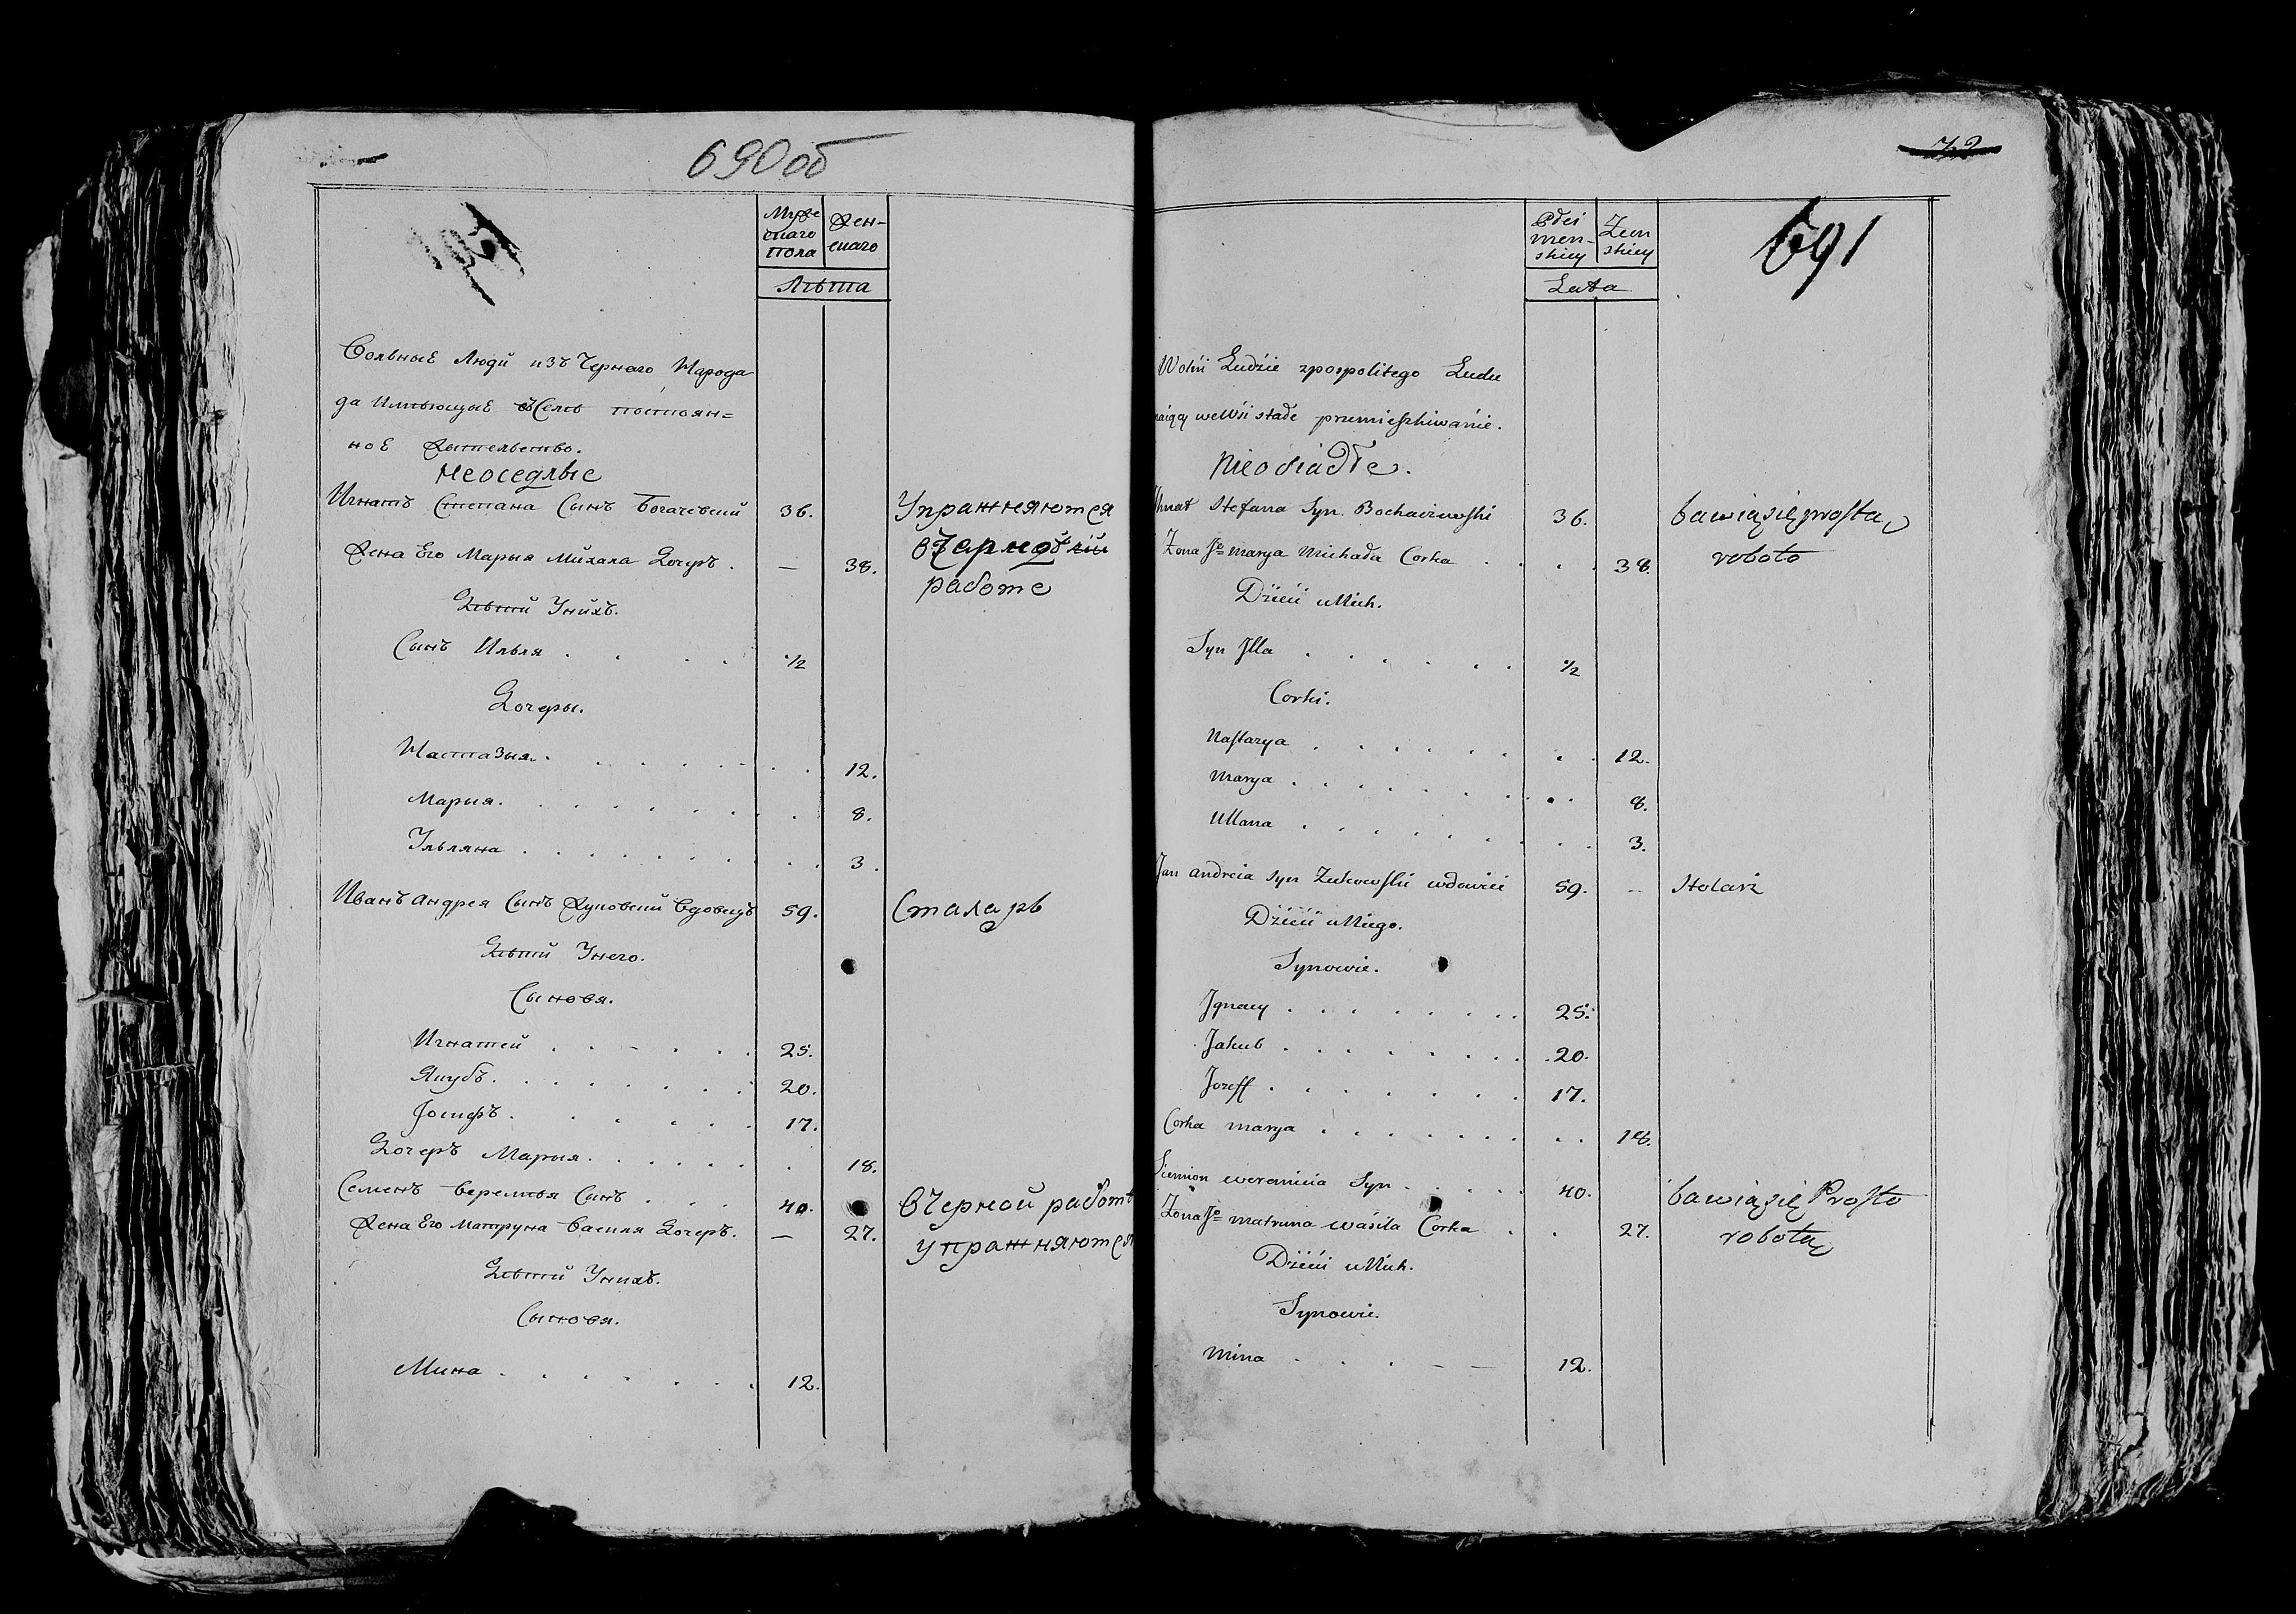 690об
Мужескаго пола
Женскаго
Лѣта
Вольные Люди изъ Чернаго Народа
да Имѣющые въ Селѣ постоян=
ное Жытельство.
Неоседлые
Игнатъ Степана Сынъ Богачевский 36. Упражняются
Жена Его Марыя Михала Дочеръ . — 38. в Черной
работе
Дѣти Унихъ.
Сынъ Илья . . . . ½
Дочеры.
Настазыя . . . . 12.
Марыя . . . . 8.
Ульляна . . . . 3.
Иванъ Андрея Сынъ Жуковский Вдовецъ 59. Сталарь
Дѣти Унего.
Сыновя.
Игнатей . . . . 25.
Якубъ . . . . 20.
Іосифъ . . . . 17.
Дочеръ Марыя . . . . 18.
Семенъ Веремѣя Сынъ . . . 40. в Черной работѣ
Жена Его Матруна Василя Дочеръ. — 27. упражняются
Дѣти Унихъ.
Сыновя.
Мина . . . . 12.
691
Płci
men-
skiey
Żen
skiey
Lata
Wolni Ludzie zpospolitego Ludu
we Wsi stałe przemieszkiwanie.
Nieosiadłe.
Ihnat Stefana Syn Bochaczewski 36. bawią się prostą
Zona Je marya Michała Corka . . . 38. roboto
Dzieci u Nich.
Syn Illa . . . . ½
Corki.
Nastazya . . . . 12.
Marya . . . . 8.
Ullana . . . . 3.
Jan andreia syn Zukowski wdowiec 59. -- Stolarz
Dzieci u Niego.
Synowie.
Jgnacy . . . . 25.
Jakub . . . . 20.
Jozeff . . . . 17.
Corka marya . . . . 18.
Siemion weremieia Syn . . . . 40. bawią się Prosto
Zona Je matruna wasila Corka . . 27. robotą
Dzieci u Nich.
Synowie.
Mina . . . - — 12.